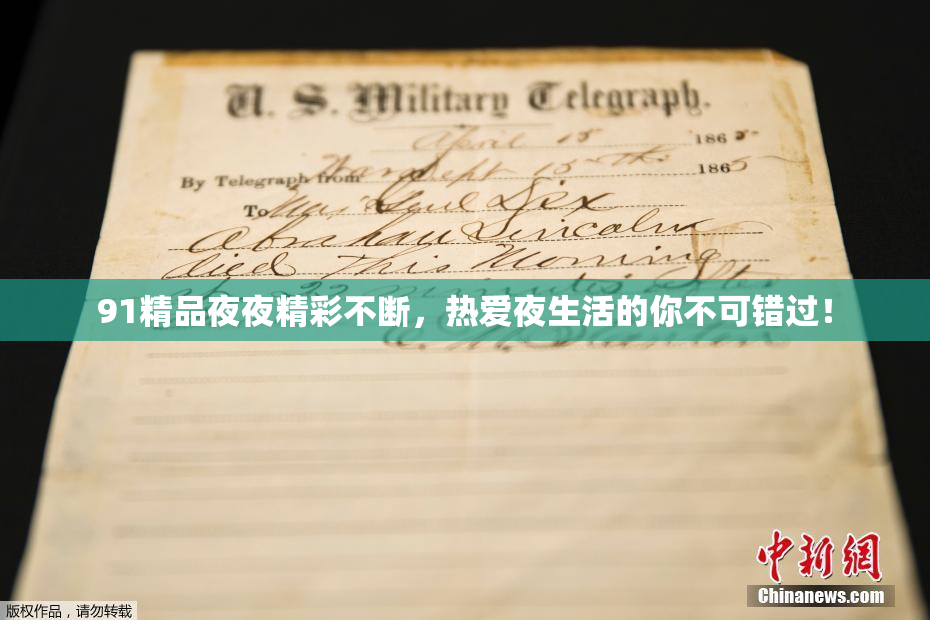 U. S. Military Telegraph.
April 15 1865
By Telegraph from War Dept 15th 1865
To Maj Genl Dix
Abraham Lincoln
died This Morning
22 minutes after
91精品夜夜精彩不断，热爱夜生活的你不可错过！
E. M. Stanton
中新网
Chinanews.com
版权作品，请勿转载